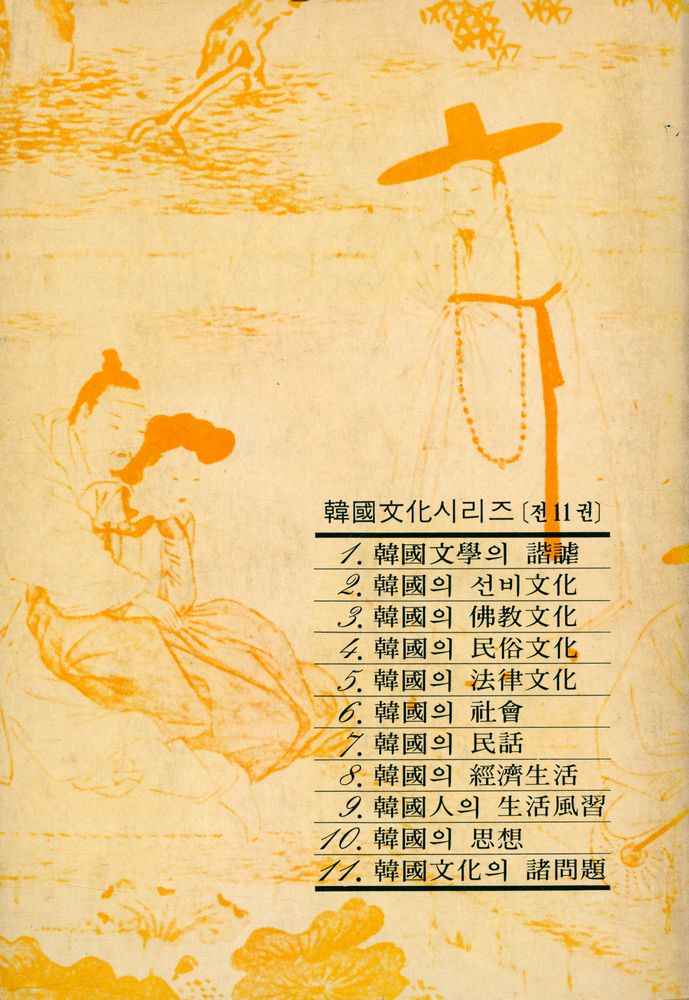 韓國文化시리즈〔전11권〕
1. 韓國文學의 諧謔
2. 韓國의 선비文化
3. 韓國의 佛敎文化
4. 韓國의 民俗文化
5. 韓國의 法律文化
6. 韓國의 社會
7. 韓國의 民話
8. 韓國의 經濟生活
9. 韓國人의 生活風習
10. 韓國의 思想
11. 韓國文化의 諸問題